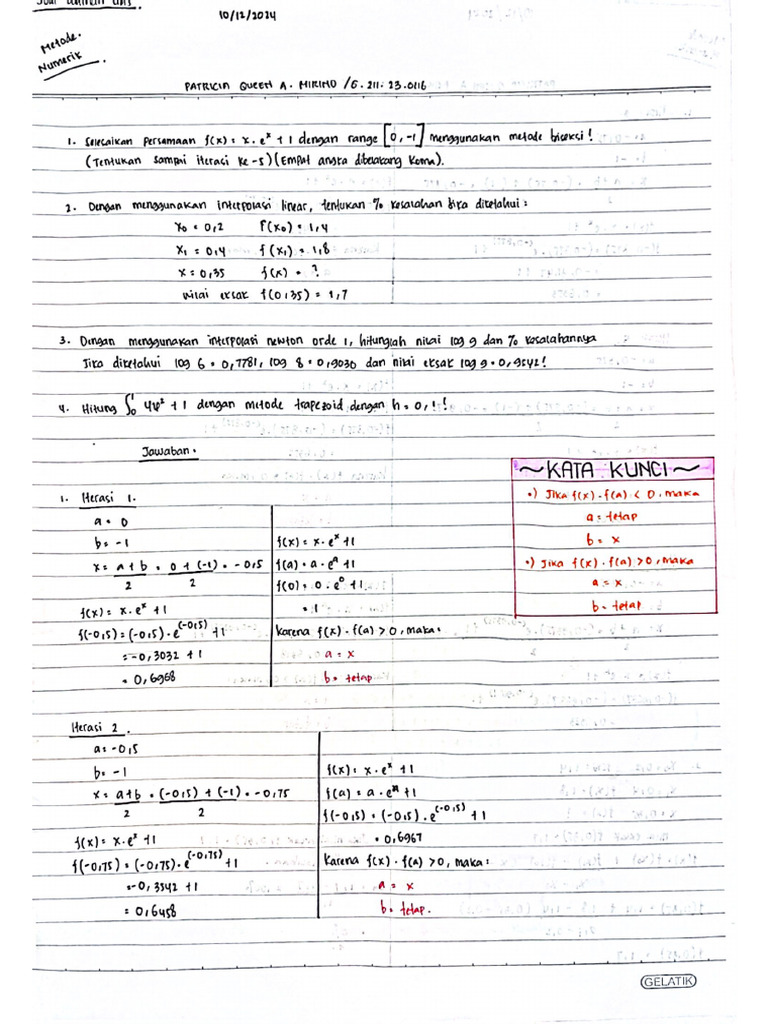 Soal Latihan UAS.
10/12/2024
Metode.
Numerik
PATRICIA QUEEN A. MIRINO /G. 211. 23.0116
1. Selesaikan Persamaan f(x) = x.e^x + 1 dengan range [0, -1] menggunakan metode biseksi!
(Tentukan sampai iterasi ke-5) (Empat angka dibelakang koma).
2. Dengan menggunakan interpolasi linear, tentukan % kesalahan jika diketahui:
x₀ = 0,2 F(x₀) = 1,4
x₁ = 0,4 f(x₁) = 1,8
x = 0,35 f(x) = ?
nilai eksak f(0,35) = 1,7
3. Dengan menggunakan interpolasi newton orde 1, hitunglah nilai log 9 dan % kesalahannya
Jika diketahui log 6 = 0,7781, log 8 = 0,9030 dan nilai eksak log 9 = 0,9542!
4. Hitung ∫₀¹ 4φ² + 1 dengan metode trapezoid dengan h = 0,1!
Jawaban.
~KATA KUNCI~
•) Jika f(x) . f(a) < 0, maka
a = tetap
b = x
•) Jika f(x) . f(a) > 0, maka
a = x
b = tetap
1. Iterasi 1.
a = 0
b = -1
x = a + b / 2 = 0 + (-1) / 2 = -0,5
f(x) = x.e^x + 1
f(-0,5) = (-0,5) . e^(-0,5) + 1
= -0,3032 + 1
= 0,6968
f(x) = x.e^x + 1
f(a) = a.e^a + 1
f(0) = 0.e^0 + 1
= 1
Karena f(x) . f(a) > 0, maka:
a = x
b = tetap
Iterasi 2.
a = -0,5
b = -1
x = a+b / 2 = (-0,5) + (-1) / 2 = -0,75
f(x) = x.e^x + 1
f(-0,75) = (-0,75) . e^(-0,75) + 1
= -0,3542 + 1
= 0,6458
f(x) = x.e^x + 1
f(a) = a.e^a + 1
f(-0,5) = (-0,5) . e^(-0,5) + 1
= 0,6967
Karena f(x) . f(a) > 0, maka:
a = x
b = tetap.
GELATIK